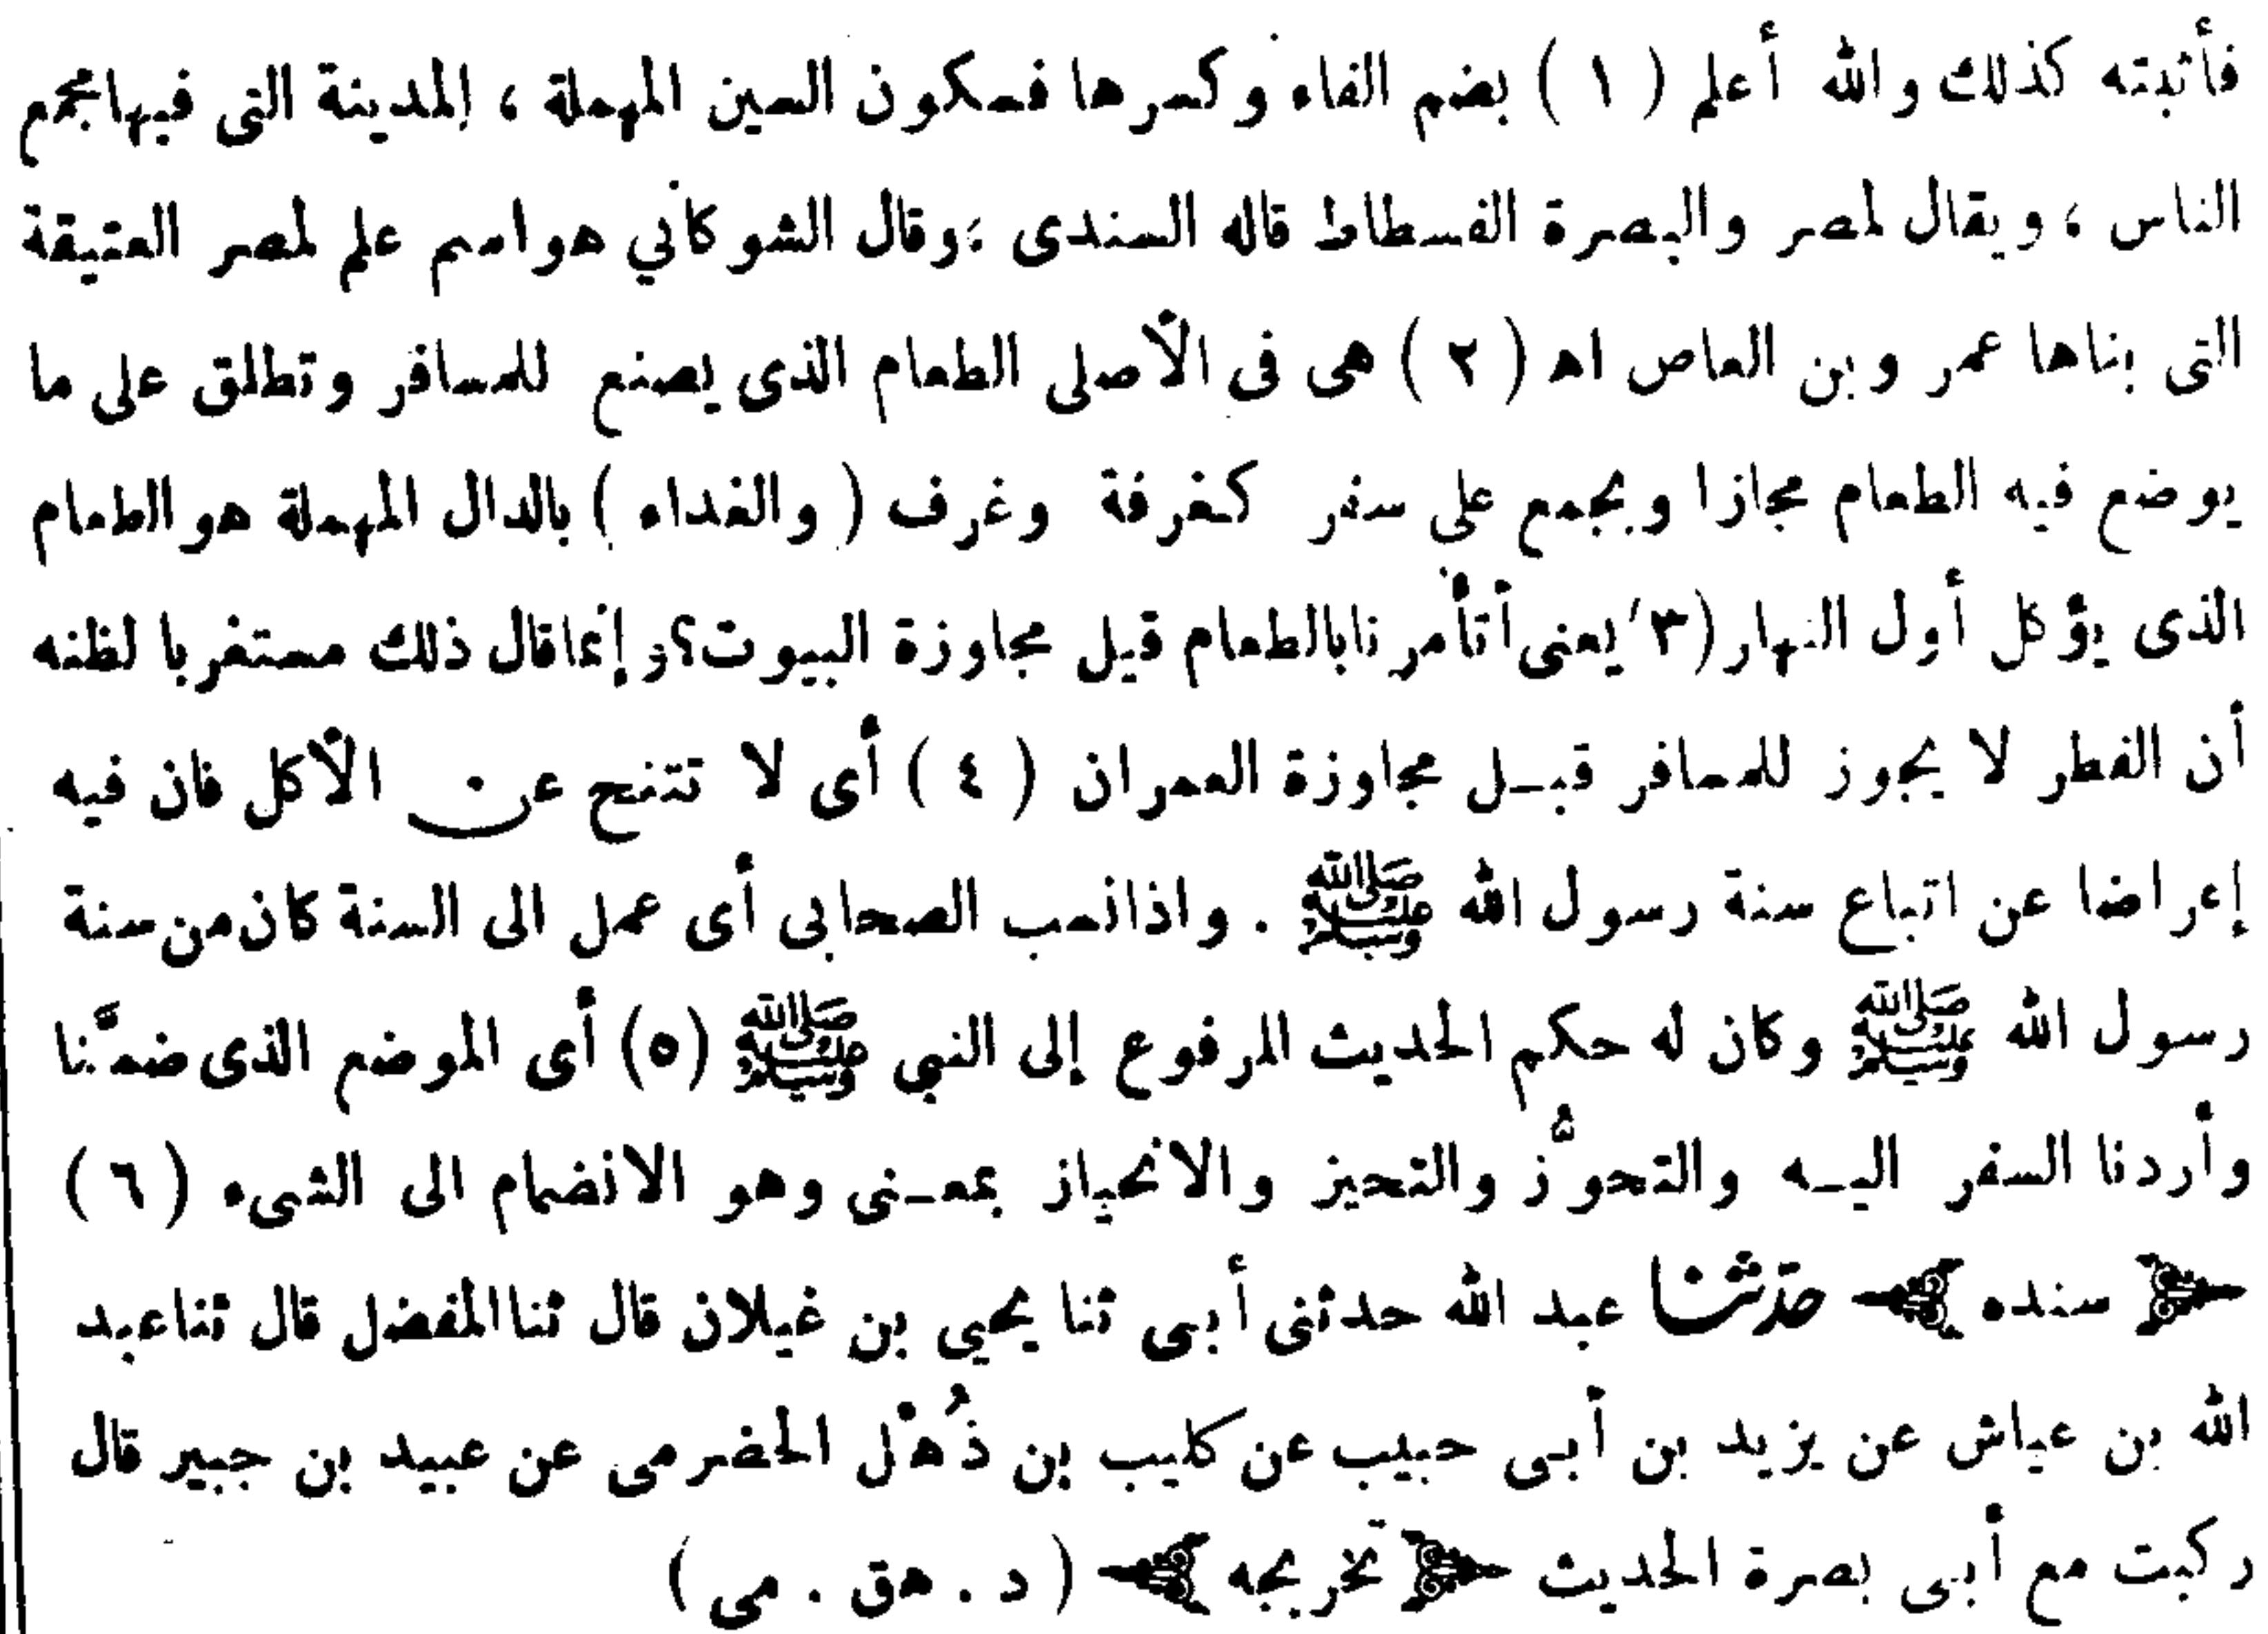 فأثبته كذلك والله أعلم ( ١ ) بضم الفاء وكسرها فسكون السين المهملة ، المدينة التى فيها مجمع
الناس ، ويقال لمصر والبصرة الفسطاط قاله السندى ، وقال الشوكاني هو اسم علم لمصر العتيقة
التى بناها عمر وبن العاص اه ( ٢ ) هى فى الأصلى الطعام الذى يصنع للمسافر وتطلق على ما
يوضع فيه الطعام مجازا ويجمع على سفر كغرفة وغرف ( والغداء ) بالدال المهملة هو الطعام
الذى يؤكل أول النهار (٣) يعنى أتأمرنا بالطعام قبل مجاوزة البيوت؟ وإنما قال ذلك مستغربا لظنه
أن الفطر لا يجوز للمسافر قبل مجاوزة العمران ( ٤ ) أى لا تتنح عن الأكل فان فيه
إعراضا عن اتباع سنة رسول الله ﷺ . واذا نسب الصحابى أى عمل الى السنة كان من سنة
رسول الله ﷺ وكان له حكم الحديث المرفوع إلى النبي ﷺ (٥) أى الموضع الذى ضمَّنا
وأردنا السفر اليه والتحوُّز والتحيز والانحياز بمعنى وهو الانضمام الى الشىء ( ٦ )
سنده حدثنا عبد الله حدثنى أبى ثنا يحيي بن غيلان قال ثنا المفضل قال ثنا عبد
الله بن عياش عن يزيد بن أبى حبيب عن كليب بن ذُهْل الحضرمى عن عبيد بن جبير قال
ركبت مع أبى بصرة الحديث تخريجه ( د . هق . مى )